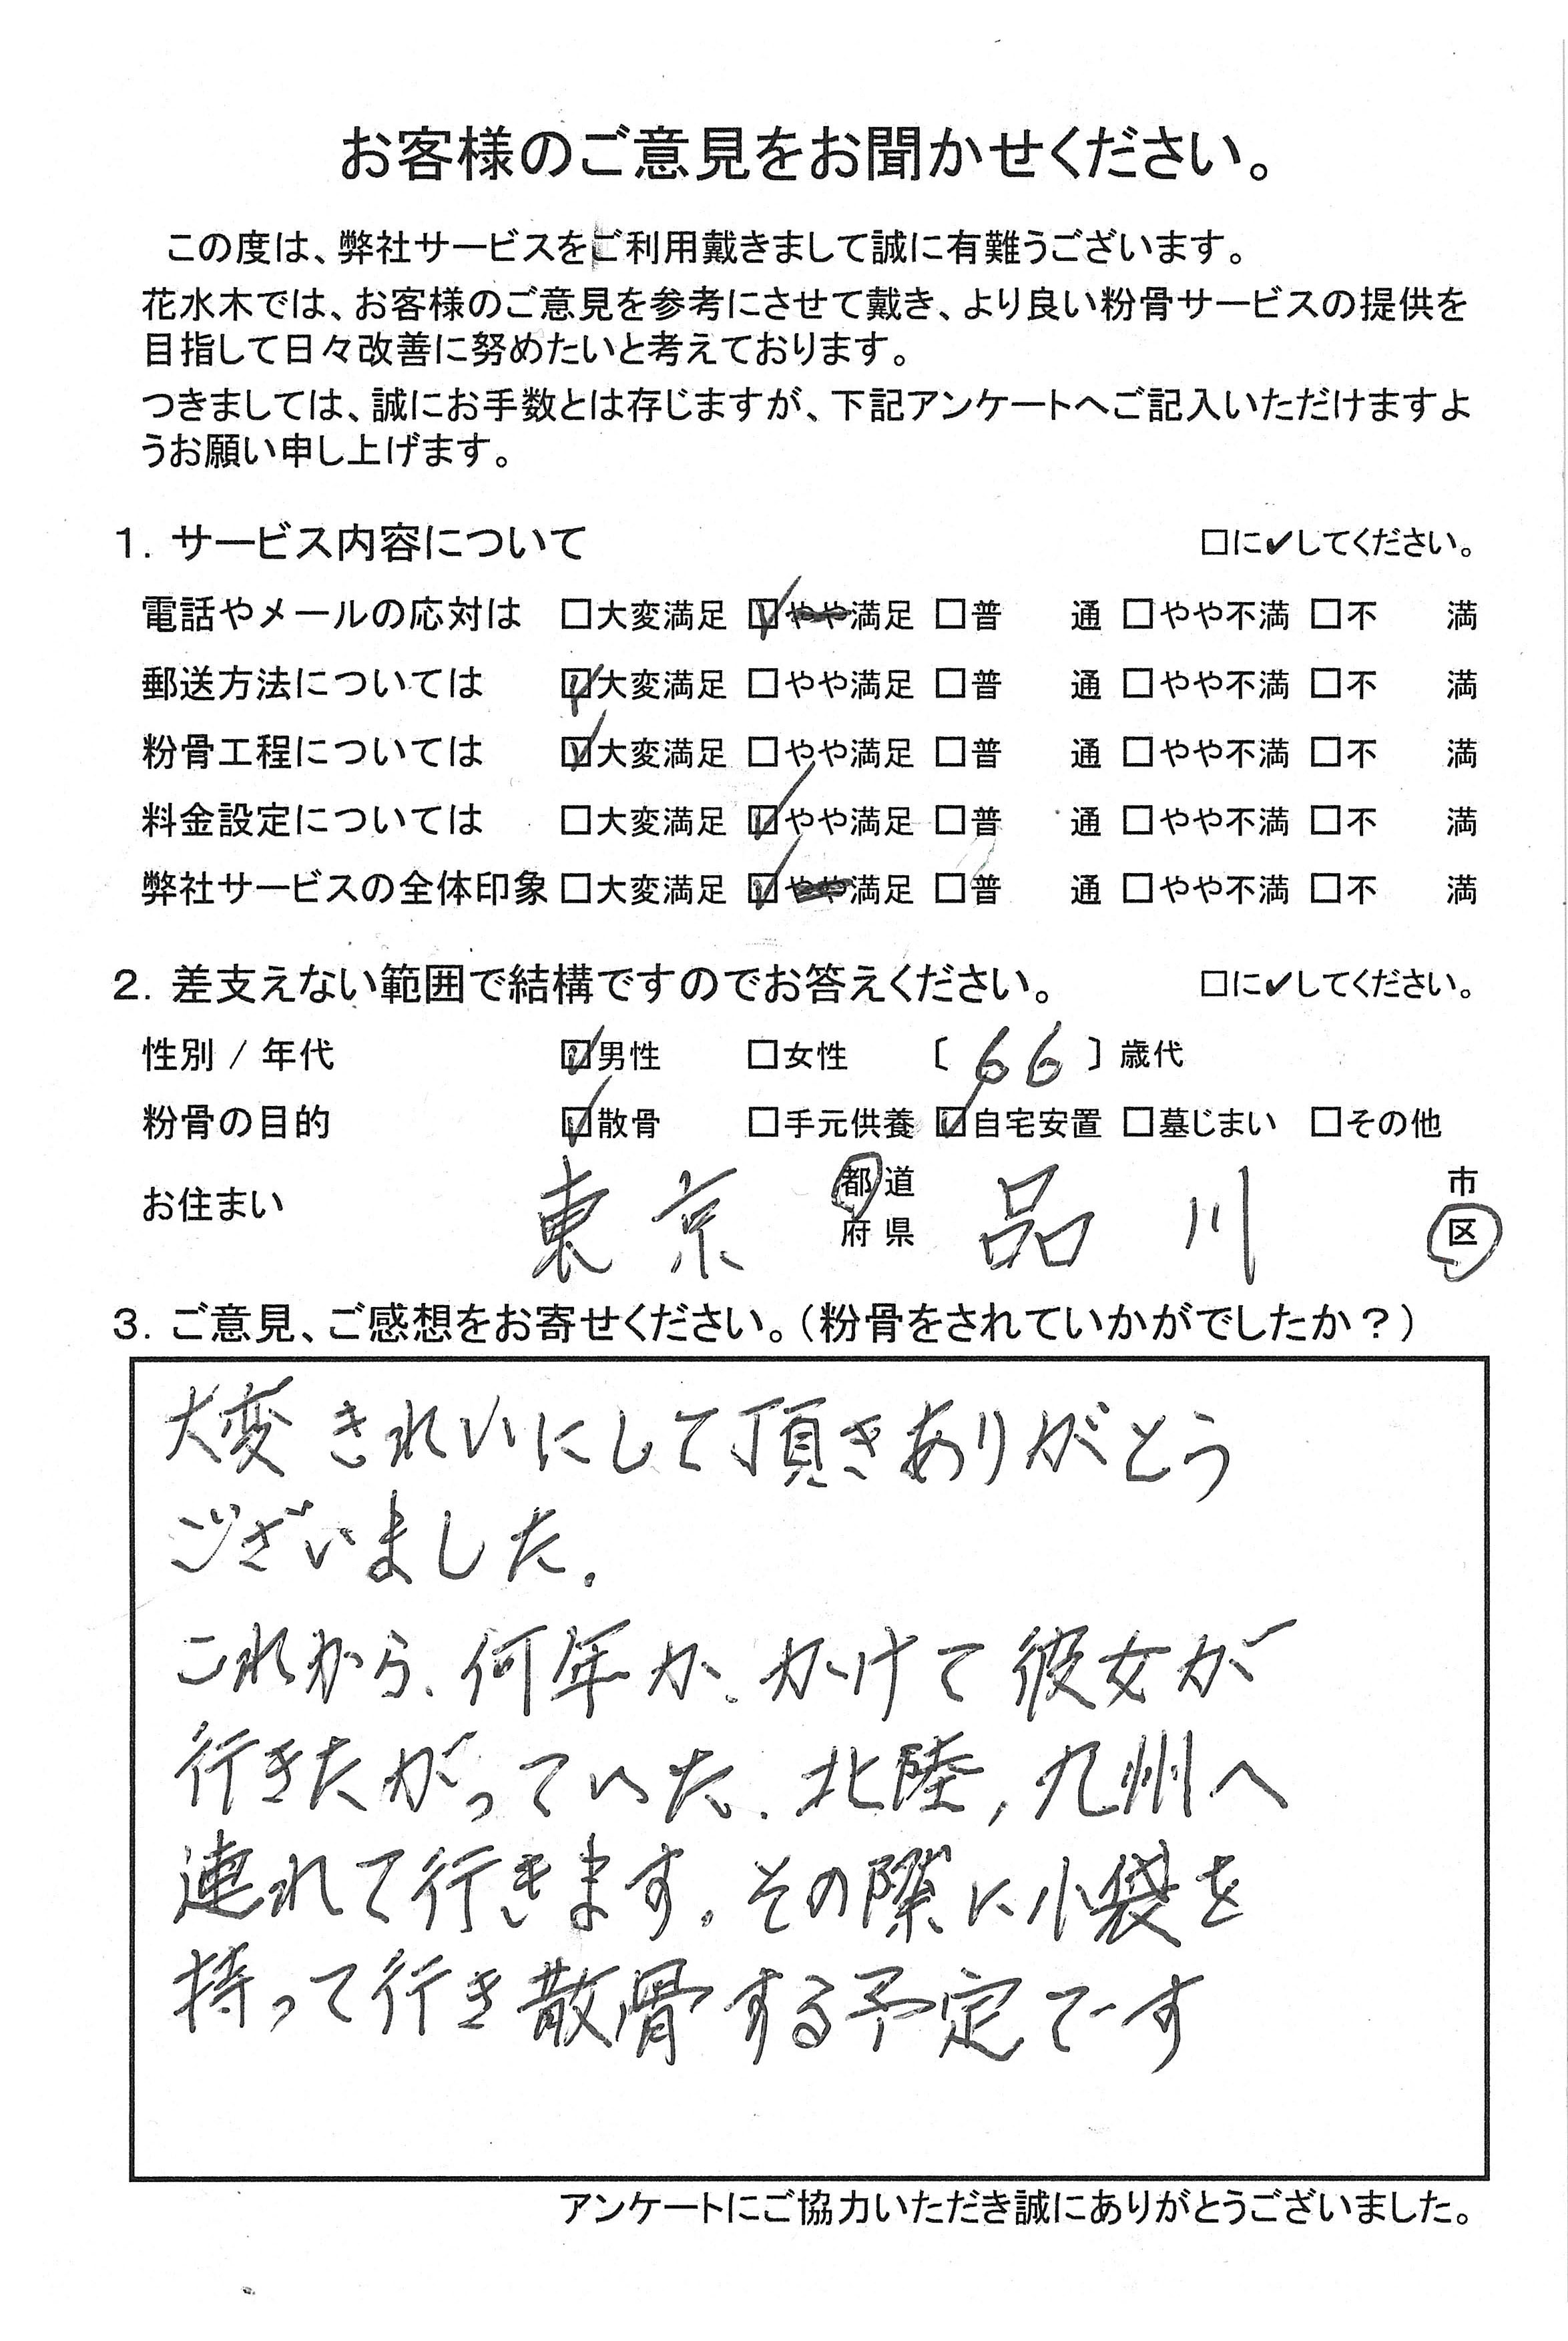 お客様のご意見をお聞かせください。
この度は、弊社サービスをご利用戴きまして誠に有難うございます。
花水木では、お客様のご意見を参考にさせて戴き、より良い粉骨サービスの提供を
目指して日々改善に努めたいと考えております。
つきましては、誠にお手数とは存じますが、下記アンケートへご記入いただけますよ
うお願い申し上げます。
1. サービス内容について □に✔してください。
電話やメールの応対は □大変満足 ☑やや満足 □普 通 □やや不満 □不 満
郵送方法については ☑大変満足 □やや満足 □普 通 □やや不満 □不 満
粉骨工程については ☑大変満足 □やや満足 □普 通 □やや不満 □不 満
料金設定については □大変満足 ☑やや満足 □普 通 □やや不満 □不 満
弊社サービスの全体印象 □大変満足 ☑やや満足 □普 通 □やや不満 □不 満
2. 差支えない範囲で結構ですのでお答えください。 □に✔してください。
性別 / 年代 ☑男性 □女性 〔 66 〕歳代
粉骨の目的 ☑散骨 □手元供養 ☑自宅安置 □墓じまい □その他
お住まい 東京 都道府県 品川 市区
3. ご意見、ご感想をお寄せください。(粉骨をされていかがでしたか？)
大変きれいにして頂きありがとう
ございました.
これから、何年か、かけて彼女が
行きたがっていた、北陸，九州へ
連れて行きます。その際に小袋を
持って行き散骨する予定です
アンケートにご協力いただき誠にありがとうございました。